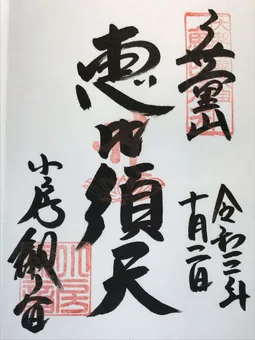 十無量山
令和三年
十月二日
恵比須天
小房観音